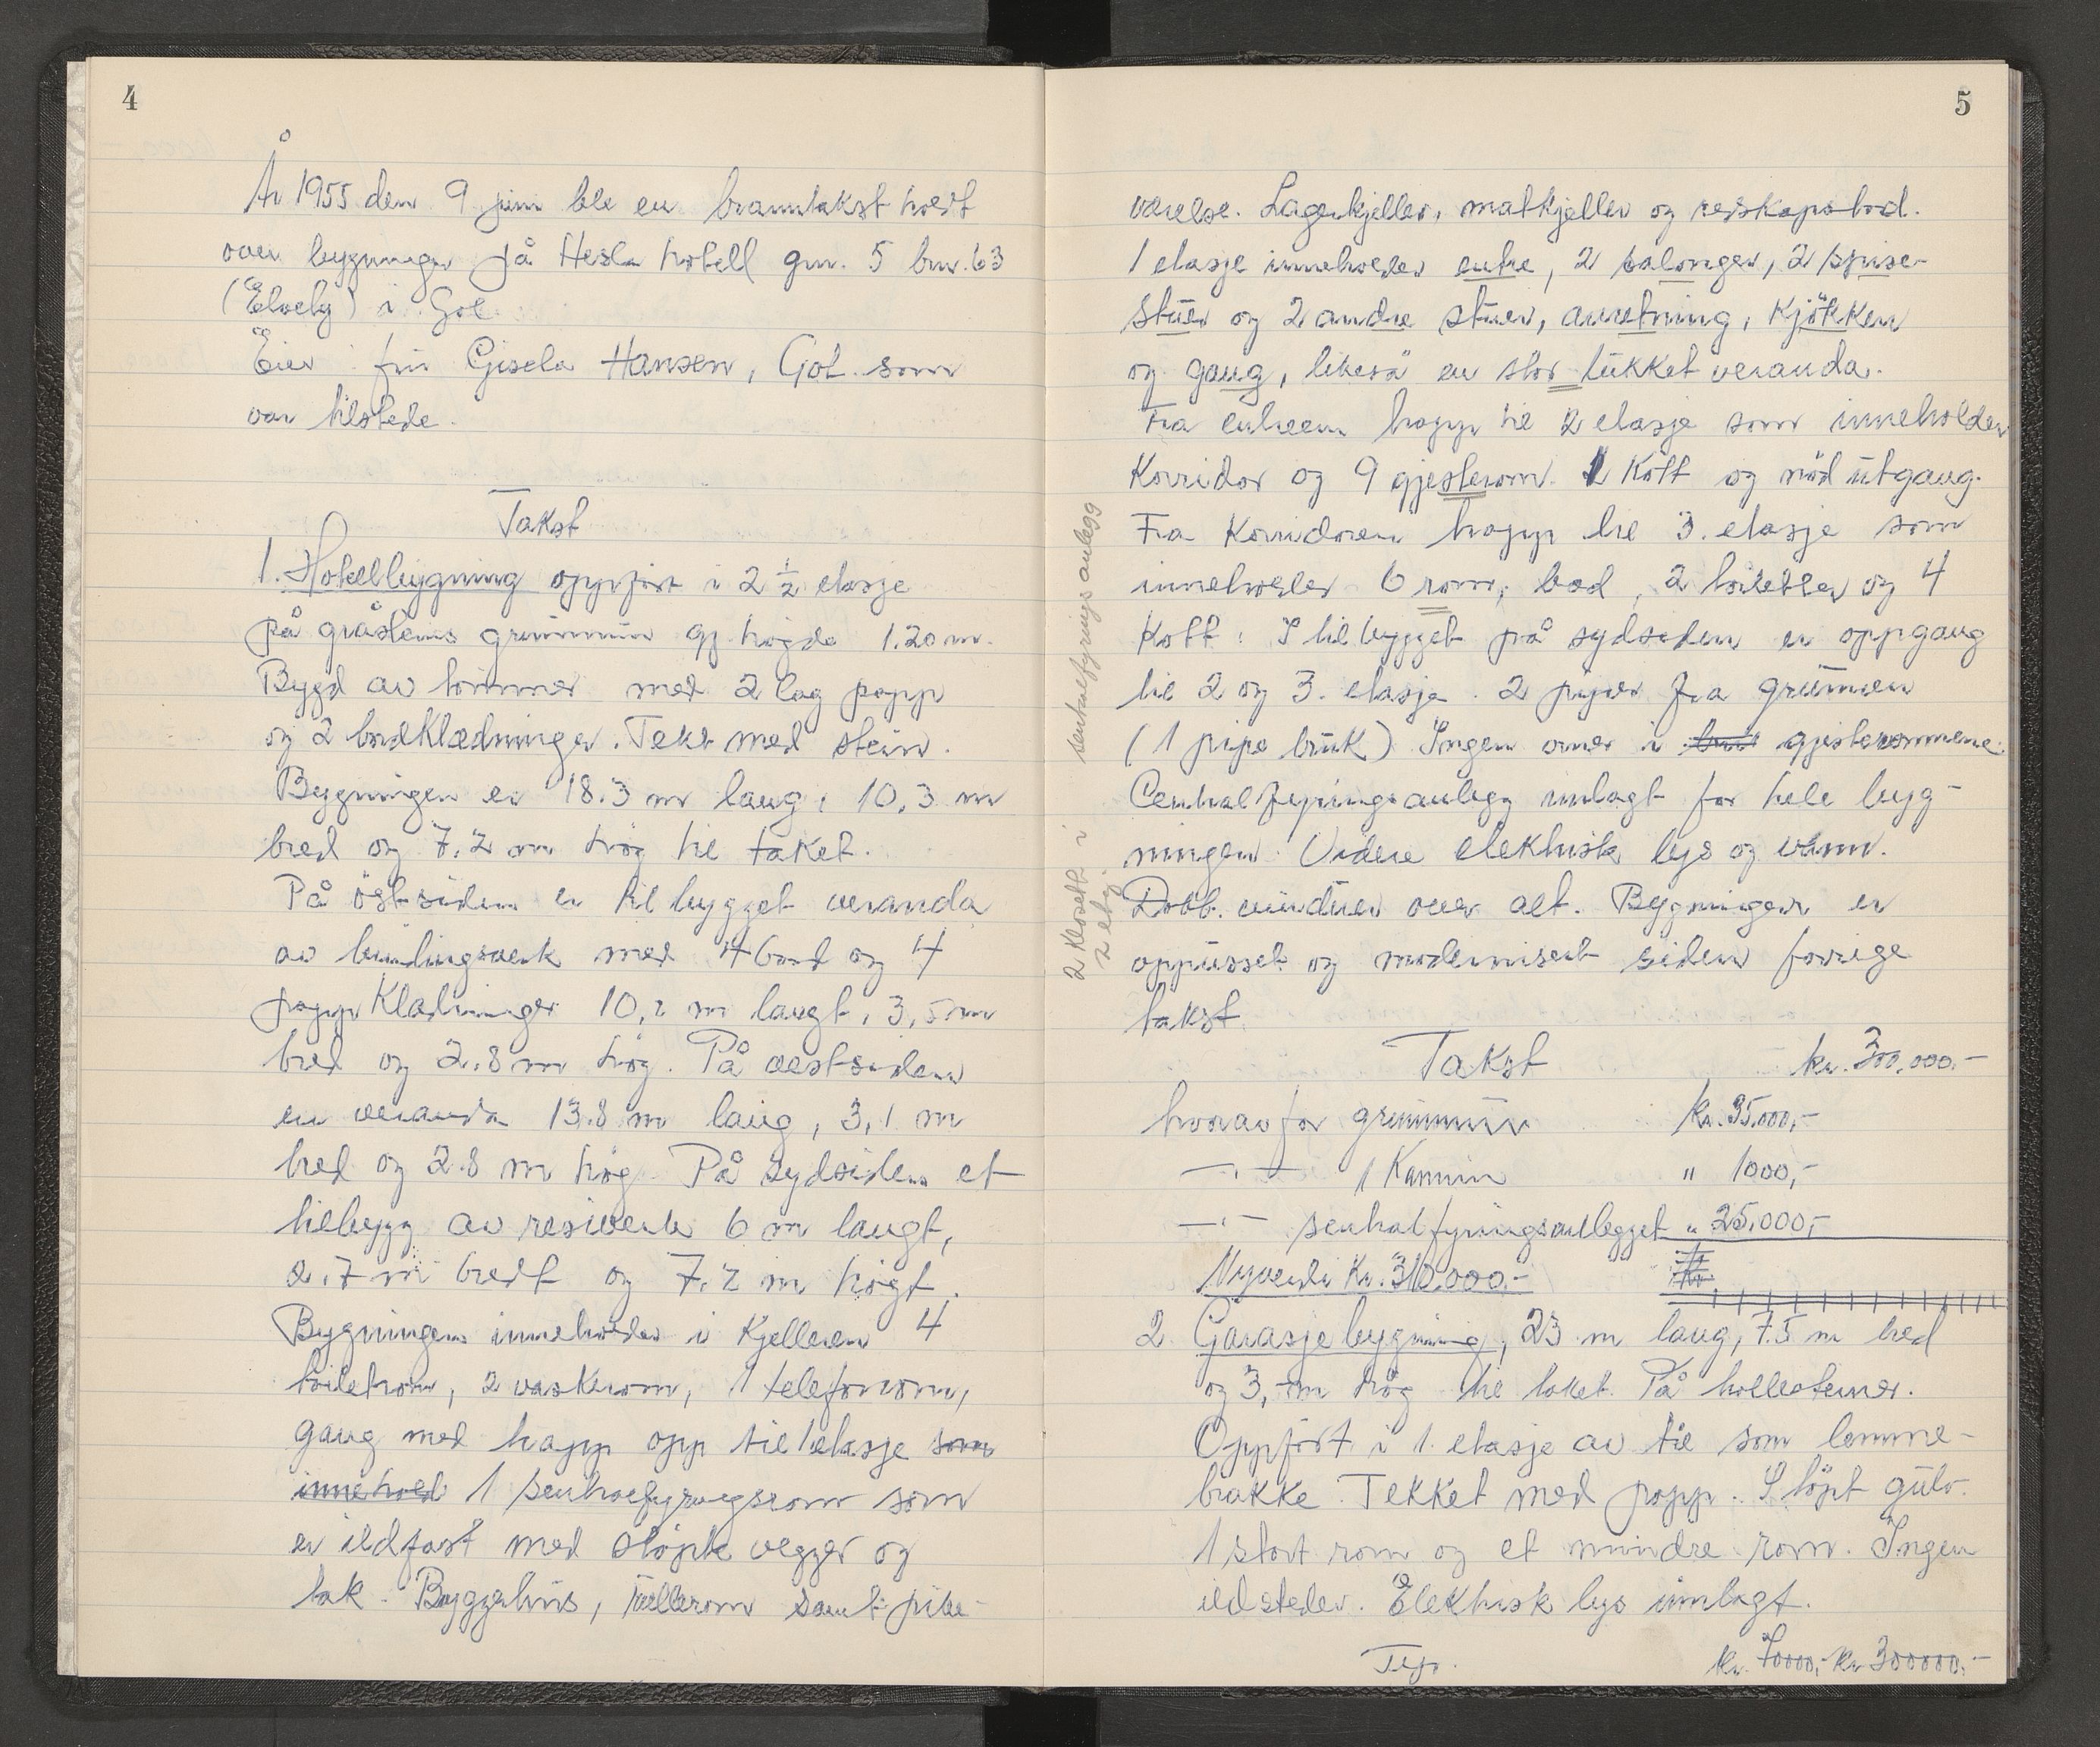 4
År 1955 den 9 juni ble en branntakst holdt
over bygninger på Hesla hotell gnr. 5 bnr. 63
(Elvely) i Gol
Eier fru Gisela Hansen, Gol. som
var tilstede.
Takst
1. Hotellbygning oppført i 2 1/2 etasje
på gråsteins grunnmur gj. høgde 1.20 m.
Bygd av tømmer med 2 lag papp
og 2 bordklædninger. Tekt med stein.
Bygningen er 18.3 m lang, 10,3 m
bred og 7,2 m høg til taket.
På östsiden er tilbygget veranda
av bindingsverk med 4 bord og 4
papp klædninger 10,2 m langt, 3,5 m
bred og 2.8 m høg. På vestsiden
en veranda 13.8 m lang, 3,1 m
bred og 2.8 m høg. På sydsiden et
tilbygg av resiverk 6 m langt,
2.7 m bredt og 7.2 m högt.
Bygningen inneholder i kjelleren 4
toiletrom, 2 vaskerom, 1 telefonrom,
gang med trapp opp til 1 etasje som
innehold 1 sentralfyringsrom som
er ildfast med støpte vegger og
tak. Byggehus, rullerom samt pike-
5
værelse. Lagerkjeller, matkjeller og redskapsbod.
1 etasje inneholder entre, 2 salonger, 2 spise-
stuer og 2 andre stuer, anretning, kjökken
og gang, likeså en stor lukket veranda.
Fra entreen trapp til 2 etasje som inneholder
korridor og 9 gjesterom. 1 kott og nöd utgang.
Fra korridoren trapp til 3. etasje som
inneholder 6 rom, bad, 2 toiletter og 4
kott. I tilbygget på sydsiden er oppgang
til 2 og 3. etasje. 2 piper fra grunnen
(1 pipe bruk) Ingen ovner i gjesterommene.
Centralfyringsanlegg innlagt for hele byg-
ningen. Videre elektrisk lys og vann.
Dobb. vinduer over alt. Bygningen er
oppusset og modernisert siden forrige
takst.
2 klosett i sentralfyringsanlegg
2 etg.
Takst kr. 300.000.-
hvorav for grunnmur kr. 35.000,-
—"— 1 Kamin " 1000,-
—"— sentralfyringsanlegget " 25.000,-
Nyverdi kr. 310.000.-
2. Garasjebygning, 23 m lang, 7.5 m bred
og 3,- m høg til taket. På hollesteiner.
Oppfört i 1. etasje av tre som lemme-
brakke. Tekket med papp. Stöpt gulv.
1 stort rom og et mindre rom. Ingen
ildsteder. Elektrisk lys innlagt.
kr. 70000,- kr 300000.-